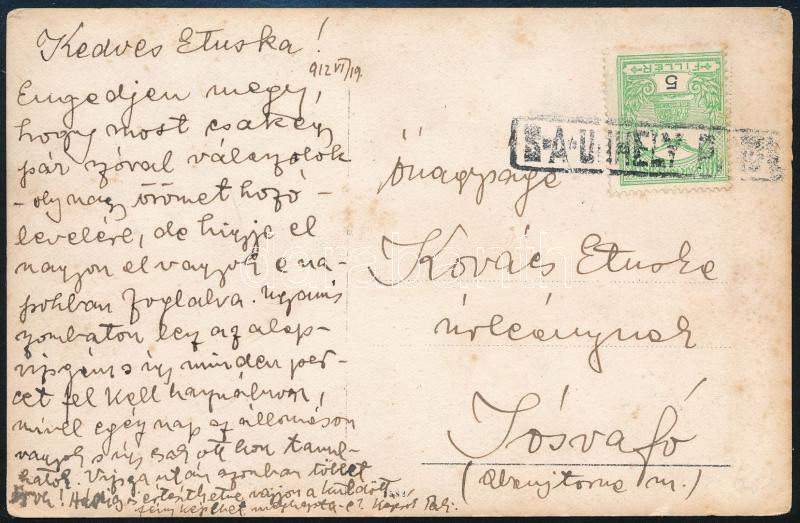 Kedves Etuska!
912 VI/19.
Engedjen meg,
hogy most csak egy
pár szóval válaszolok
- oly nagy örömet hozó -
levelére, de higyje el
nagyon el vagyok e na-
pokban foglalva. Ugyanis
szombaton lesz az alap-
vizsgám s így minden per-
cet fel kell használnom,
mivel egész nap az állomáson
vagyok s így csak ott hon tanul-
hatok. Vizsga után azonban többet
írok! Addig is értesíthetne vajjon a küldött
fényképeket megkapta-e?
FILLÉR
5
S.A.UJHELY
Önagysága
Kovács Etuska
úrleánynak
Jósvafő
(Abaujtorna m.)
darabanth